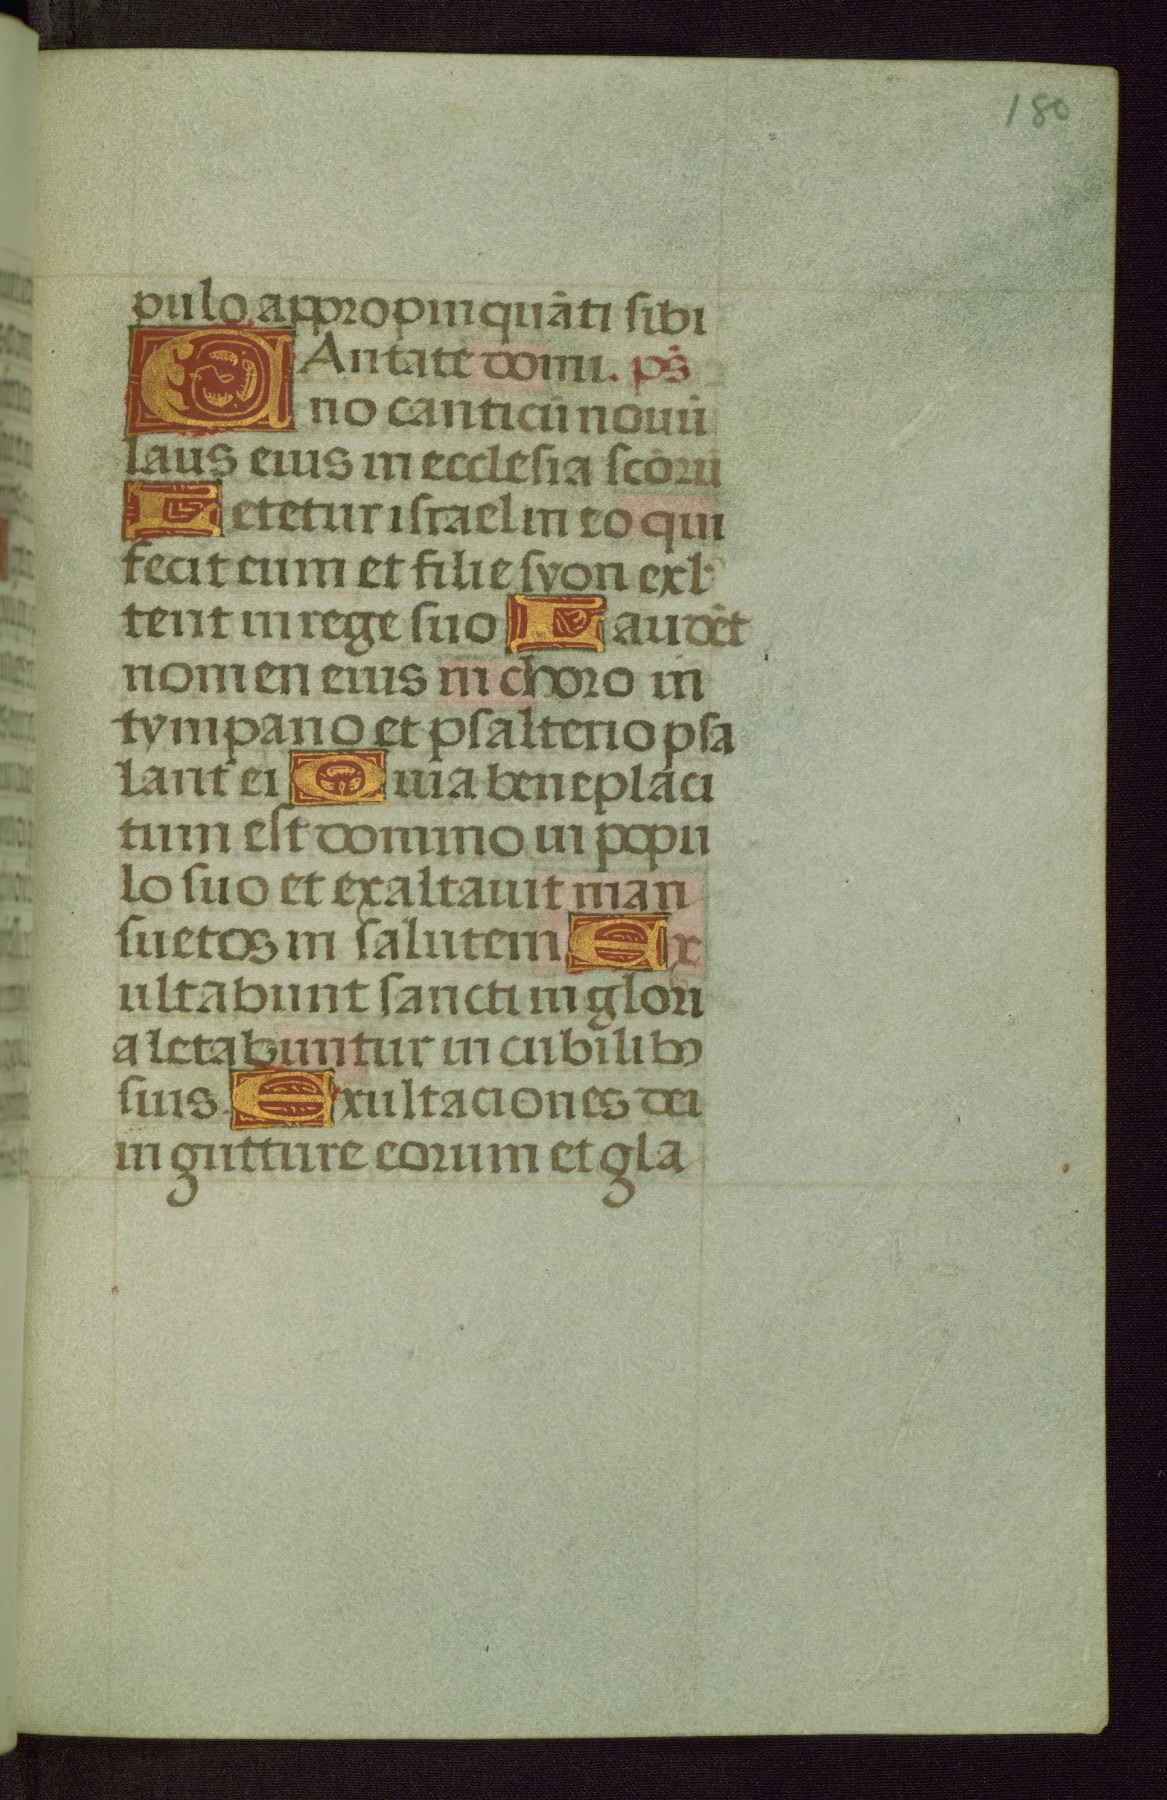 180
pulo appropinquāti sibi
CAntate domi. ps̄
no canticū nouū
laus eius in ecclesia scōrū
Letetur israel in eo qui
fecit eum et filie syon exl
tent in rege suo Laudēt
nomen eius in choro in
tympano et psalterio psa
lant ei Quia beneplaci
tum est domino in popu
lo suo et exaltauit man
suetos in salutem Ex
ultabunt sancti in glori
a letabuntur in cubilibꝫ
suis. Exultaciones dei
in gutture eorum et gla